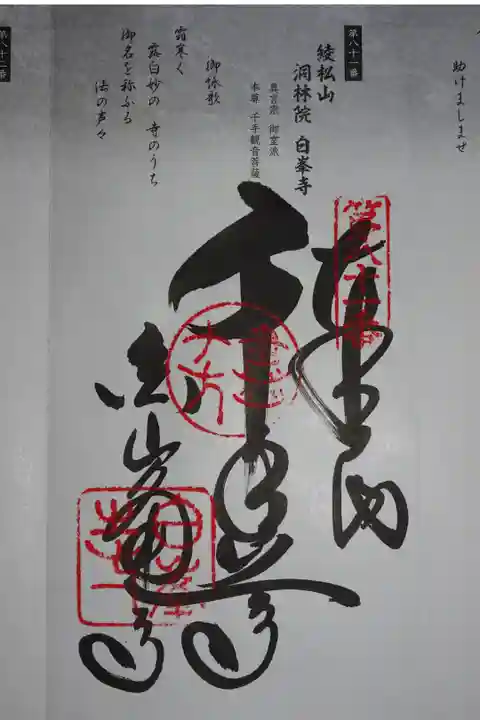 助けましませ
第八十一番
綾松山
洞林院 白峯寺
真言宗 御室派
本尊 千手観音菩薩
御詠歌
霜寒く
露白妙の 寺のうち
御名を称ふる
法の声々
第八十二番
奉納
第八十一番
千手
白峯寺